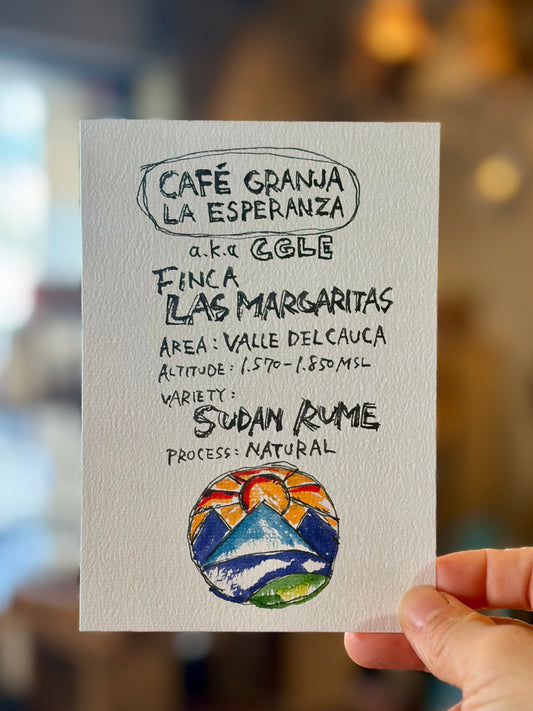 CAFÉ GRANJA
LA ESPERANZA
a.k.a CGLE
FINCA
LAS MARGARITAS
AREA: VALLE DEL CAUCA
ALTITUDE: 1.570-1.850 MSL
VARIETY:
SUDAN RUME
PROCESS: NATURAL